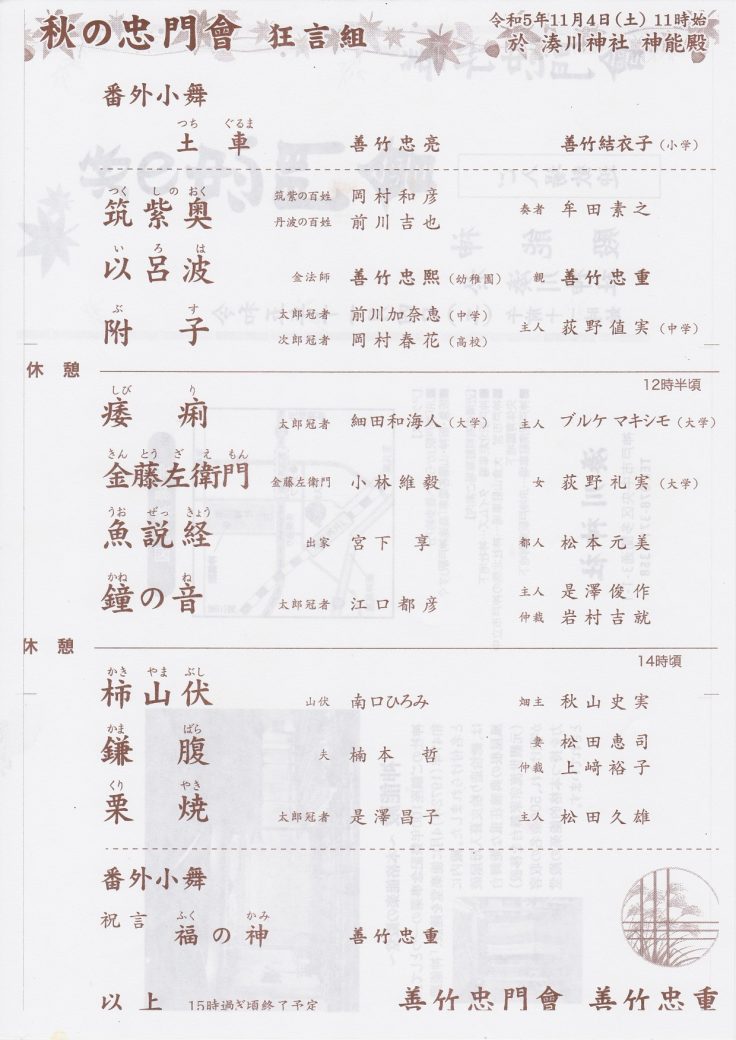 秋の忠門會 狂言組
令和5年11月4日(土) 11時始
於 湊川神社 神能殿
番外小舞
つち ぐるま
土車 善竹忠亮 善竹結衣子(小学)
つく しの おく
筑紫奥 筑紫の百姓 岡村和彦 奏者 牟田素之
丹波の百姓 前川吉也
い ろ は
以呂波 金法師 善竹忠熙(幼稚園) 親 善竹忠重
ぶ す
附子 太郎冠者 前川加奈恵(中学) 主人 荻野値実(中学)
次郎冠者 岡村春花(高校)
休憩
12時半頃
しび り
痿痢 太郎冠者 細田和海人(大学) 主人 ブルケ マキシモ(大学)
きん とう ざ え もん
金藤左衛門 金藤左衛門 小林維毅 女 荻野礼実(大学)
うお ぜっ きょう
魚説経 出家 宮下享 都人 松本元美
かね ね
鐘の音 太郎冠者 江口都彦 主人 是澤俊作
仲裁 岩村吉就
休憩
14時頃
かき やま ぶし
柿山伏 山伏 南口ひろみ 畑主 秋山史実
かま ばら
鎌腹 夫 楠本哲 妻 松田恵司
仲裁 上﨑裕子
くり やき
栗焼 太郎冠者 是澤昌子 主人 松田久雄
番外小舞
祝言
ふく かみ
福の神 善竹忠重
以上 15時過ぎ頃終了予定 善竹忠門會 善竹忠重